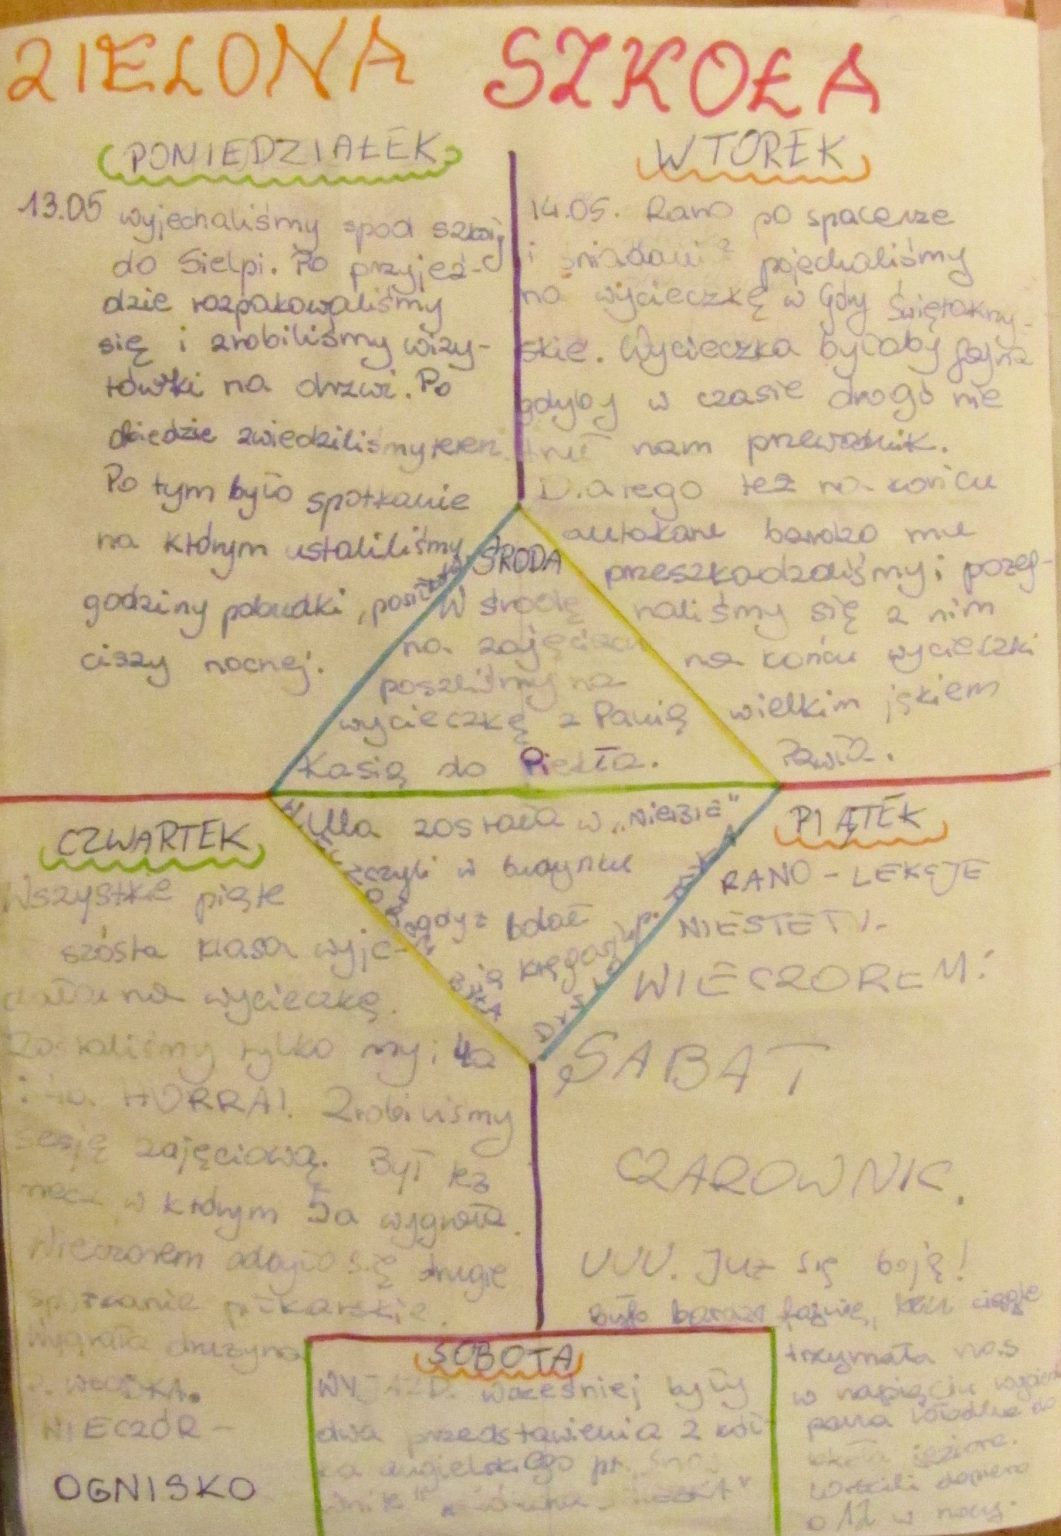 ZIELONA SZKOŁA
PONIEDZIAŁEK
13.05 wyjechaliśmy spod szkoły
do Sielpi. Po przyjeź-
dzie rozpakowaliśmy
się i zrobiliśmy wizy-
tówki na drzwi. Po
obiedzie zwiedziliśmy teren.
Po tym było spotkanie
na którym ustaliliśmy
godziny pobudki, posiłków
ciszy nocnej.
WTOREK
14.05. Rano po spacerze
i śniadaniu pojechaliśmy
na wycieczkę w Góry Świętokrzy-
skie. Wycieczka byłaby fajna
gdyby w czasie drogi nie
truł nam przewodnik.
Dlatego też na końcu
autokaru bardzo mu
przeszkadzaliśmy i pożeg-
naliśmy się z nim
na końcu wycieczki
wielkim jękiem
Pawła.
ŚRODA
W środę
na zajęciach
poszliśmy na
wycieczkę z Panią
Kasią do Piekła.
Ulla została w „Niebie"
czyli w budynku
gdyż bolał
ją kręgosłup.
CZWARTEK
Wszystkie piąte
szósta klasa wyje-
chała na wycieczkę.
Zostaliśmy tylko my i 4a
HURRA! Zrobiliśmy
sesję zajęciową. Był też
mecz w którym 5a wygrała.
Wieczorem odbyło się drugie
spotkanie piłkarskie.
Wygrała drużyna
p. WŁODKA.
WIECZÓR -
OGNISKO
PIĄTEK
RANO - LEKCJE
NIESTETY.
WIECZOREM:
SABAT
CZAROWNIC.
UUU. Już się boję!
Było bardzo fajnie, ciągle
trzymała nas
w napięciu
pana Włodka do
jeziora.
Wrócili dopiero
o 12 w nocy.
SOBOTA
WYJAZD. Wcześniej były
dwa przedstawienia z kół-
ka angielskiego pt.